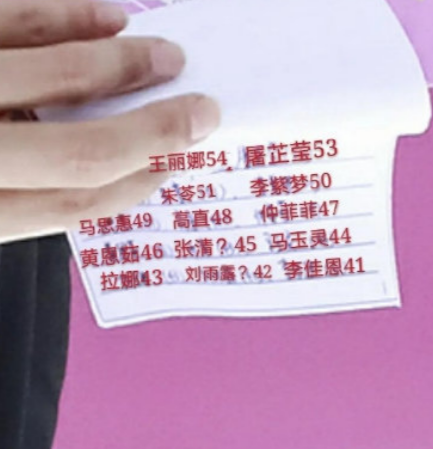 王丽娜54 屠芷莹53
朱苓51 李紫梦50
马思惠49 高直48 仲菲菲47
黄恩茹46 张清？45 马玉灵44
拉娜43 刘雨露？42 李佳恩41